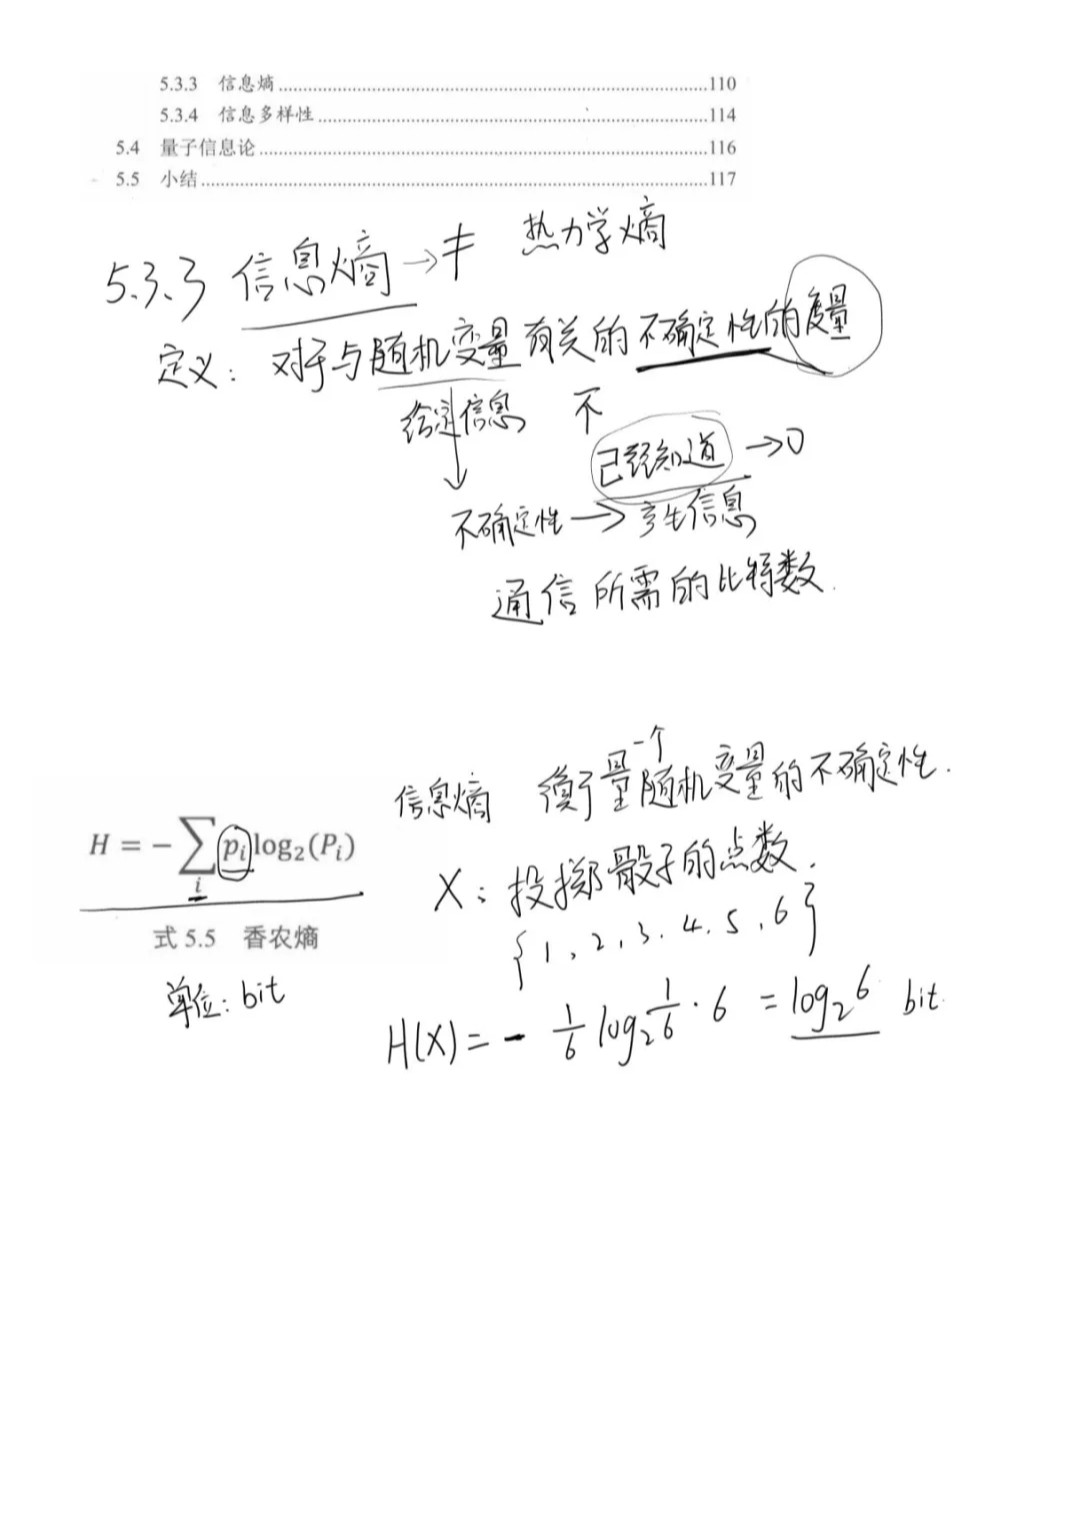 5.3.3 信息熵 110
5.3.4 信息多样性 114
5.4 量子信息论 116
5.5 小结 117
5.3.3 信息熵 → ≠ 热力学熵
定义：对于与随机变量有关的不确定性的度量
给定信息 不
已经知道 → 0
不确定性 → 产生信息
通信所需的比特数.
信息熵 衡量一个随机变量的不确定性.
H = −∑ᵢ pᵢ log₂(Pᵢ)
X：投掷骰子的点数.
式 5.5 香农熵
{1, 2, 3. 4. 5, 6}
单位: bit
H(X) = - 1/6 log₂ 1/6 · 6 = log₂ 6 bit.